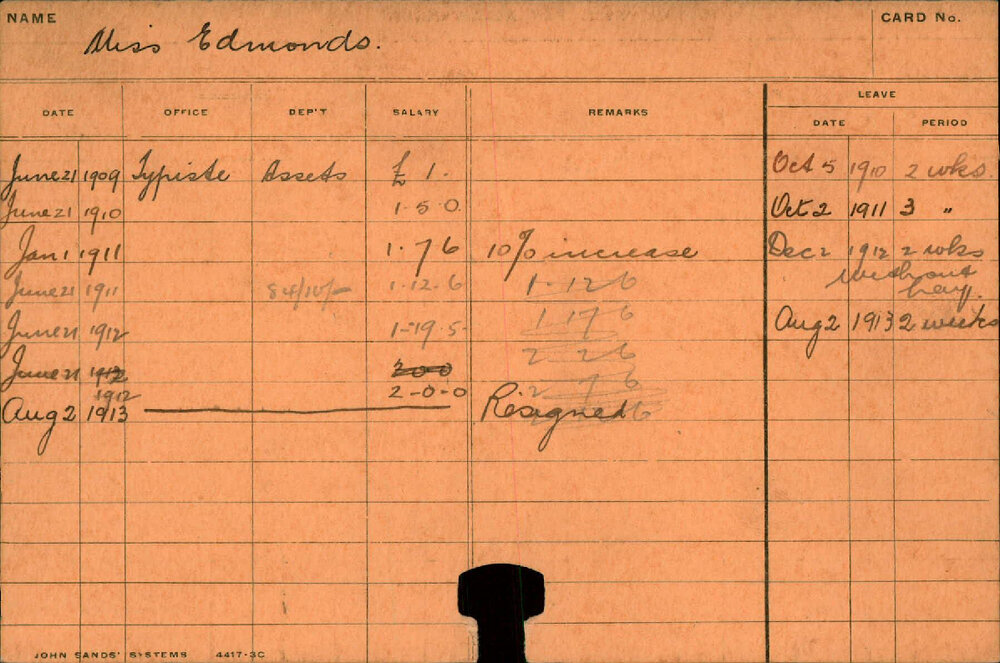 NAME Miss Edmonds. CARD No.
LEAVE
DATE OFFICE DEP'T SALARY REMARKS DATE PERIOD
June 21 1909 Typiste Assets £ 1. Oct 5 1910 2 wks.
June 21 1910 1.5.0. Oct 2 1911 3 "
Jan 1 1911 1.7 6 10% increase Dec 2 1912 2 wks
without pay.
June 21 1911 1.12.6 1.12 6
June 21 1912 1-19.5- 1 17 6 Aug 2 1913 2 weeks
2 2 6
June 21 1912 2 0 0 2 7 6
1912 2-0-0
Aug 2 1913 Resigned 6
JOHN SANDS' SYSTEMS 4417-3C